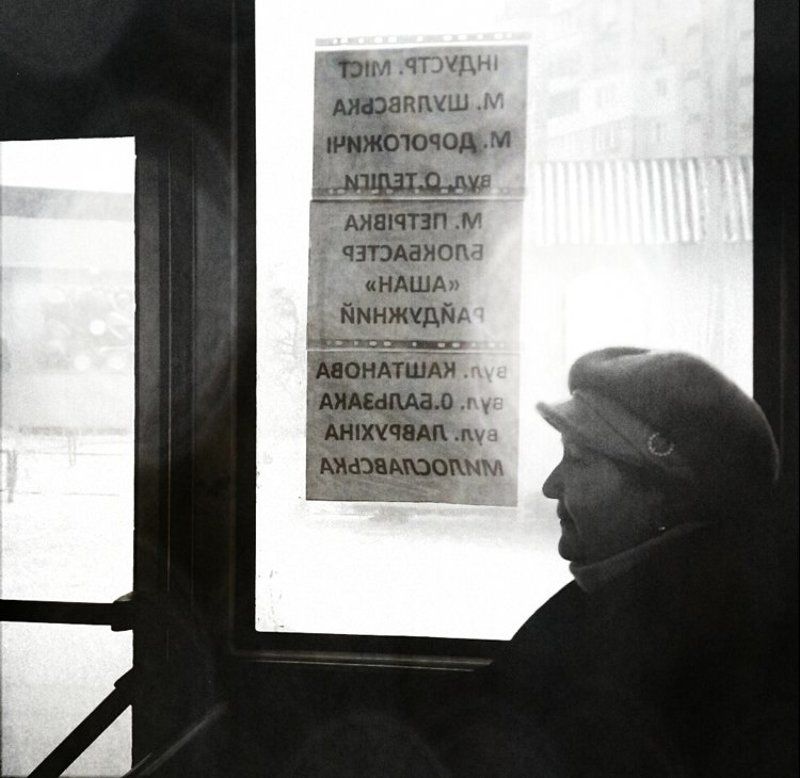 ІНДУСТР. МІСТ
М. ШУЛЯВСЬКА
М. ДОРОГОЖИЧІ
вул. О.ТЕЛІГИ
М. ПЕТРІВКА
БЛОКБАСТЕР
«АШАН»
РАЙДУЖНИЙ
вул. КАШТАНОВА
вул. О.БАЛЬЗАКА
вул. ЛАВРУХІНА
МИЛОСЛАВСЬКА